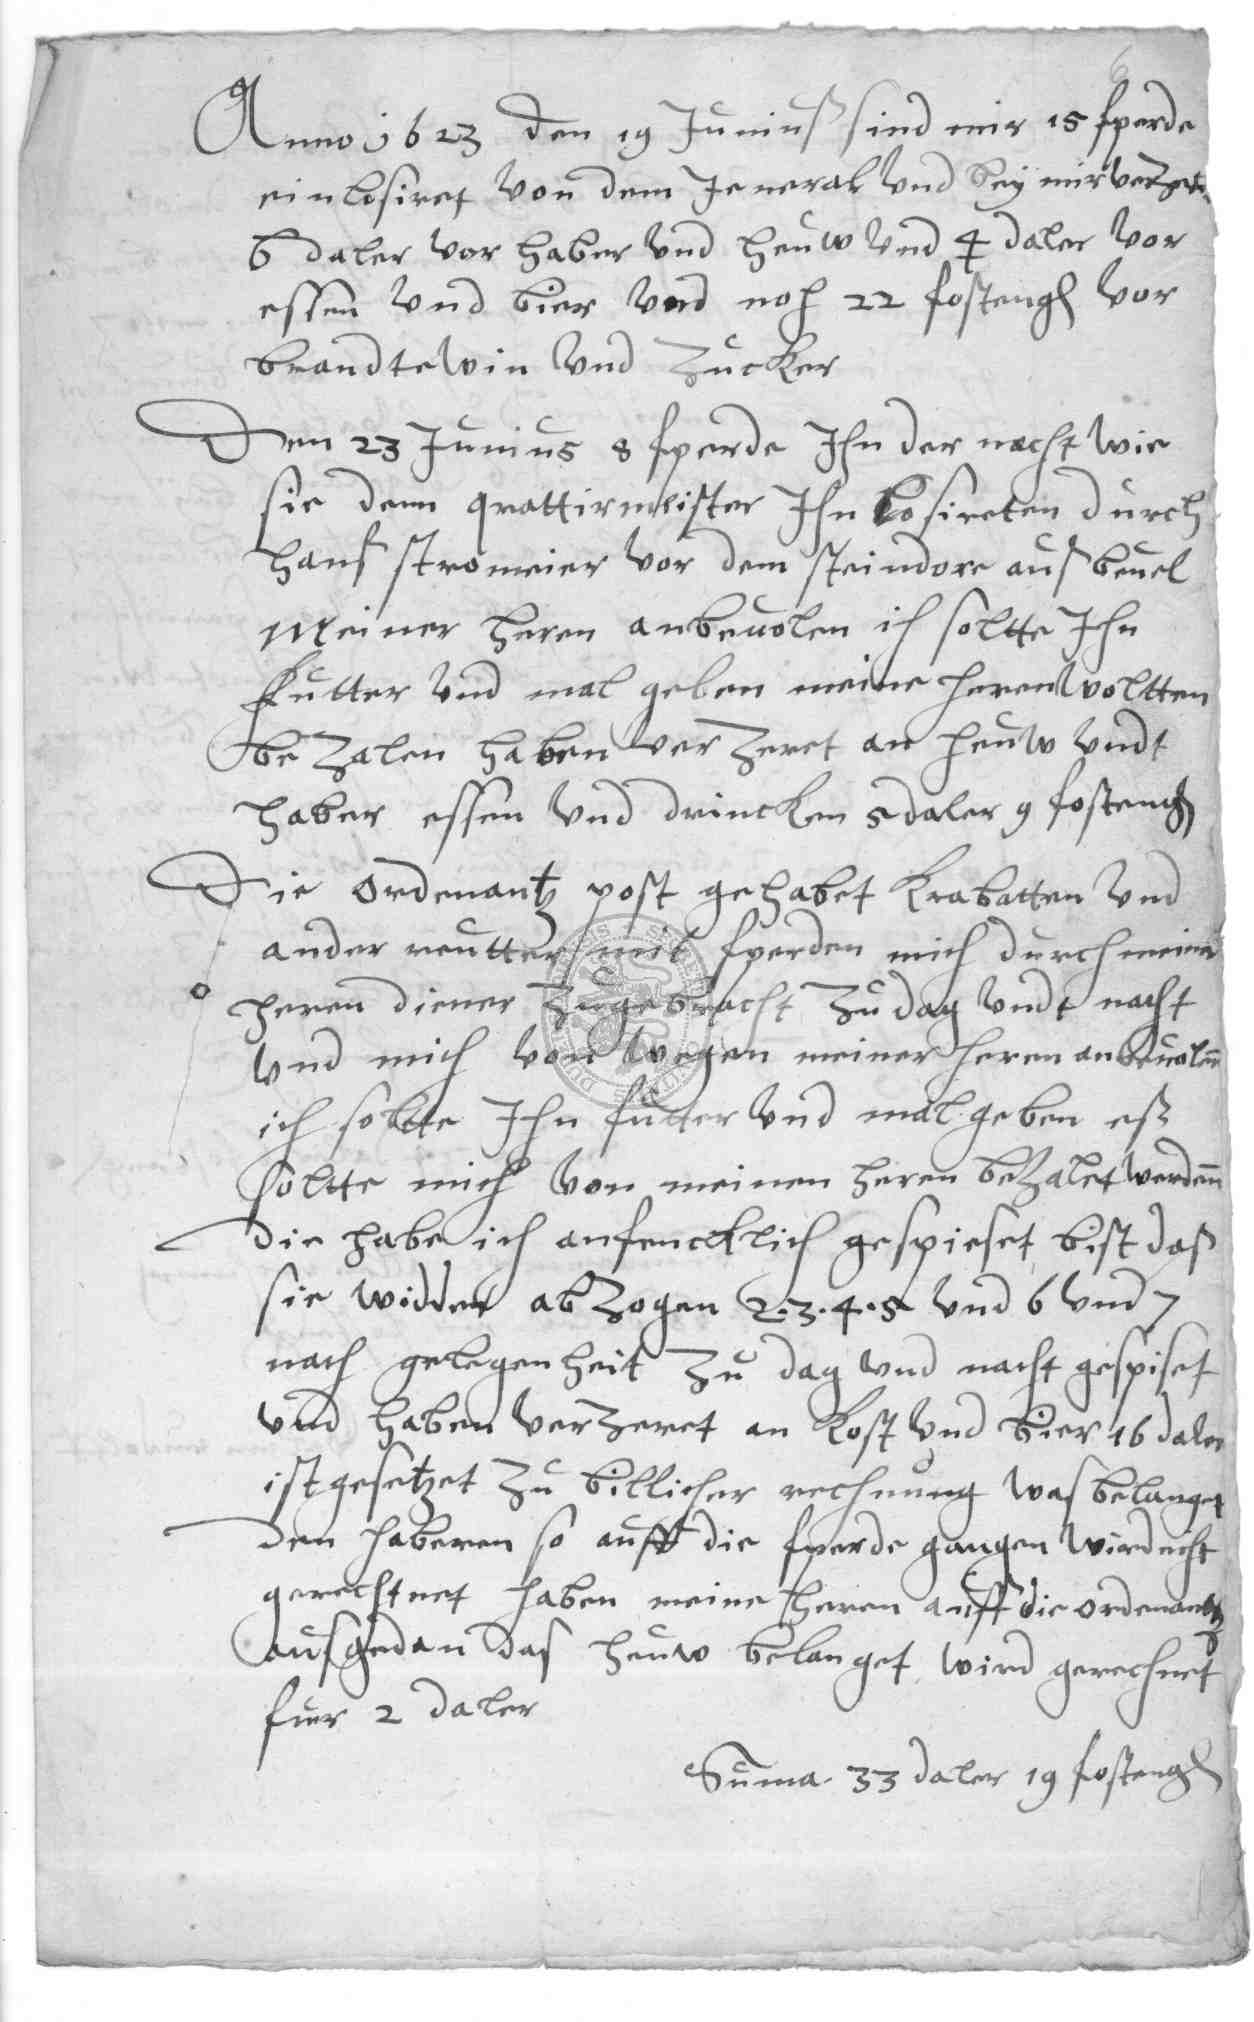 Anno 1623 den 19 Juniuß sind mir 15 fperde
einlosiret von dem Jeneral vnd bey mir verzert
6 daler vor haber vnd heuw vnd 4 daler vor
essen vnd bier vnd noch 22 fosteng vor
brandtewin vnd Zucker
Den 23 Junius 8 fperde Ihn der nacht wie
sie dem quattirmeister Ihn losireten durch
hans stromeier vor dem steindore aus beuel
Meiner heren anbeuolen ich soltte Ihn
Futter vnd mal geben meine heren voltten
bezalen haben verzeret an heuw vndt
haber essen vnd drincken 5 daler 9 fosteng
Die ordenantz post gehabet Krabatten vnd
ander reutter mit fperden mich durch meiner
heren diener zugebracht zu dag vndt nacht
vnd mich von wegen meiner heren anbeuolen
ich soltte Ihn futter vnd mal geben eß
soltte mich von meinen heren bezalet werdenn
die habe ich anfencklich gespieset bist das
sie widder abzogen 2.3.4.5 vnd 6 vnd 7
nach gelegenheit zu dag vnd nacht gespiset
vnd haben verzeret an Kost vnd bier 16 daler
ist gesetzet zu billicher rechnung was belanget
den haberen so auff die fperde gangen wird nicht
gerechtnet haben meine heren auff die ordenantz
ausgedan das heuw belanget wird gerechnet
fuer 2 daler
Suma 33 daler 19 fosteng